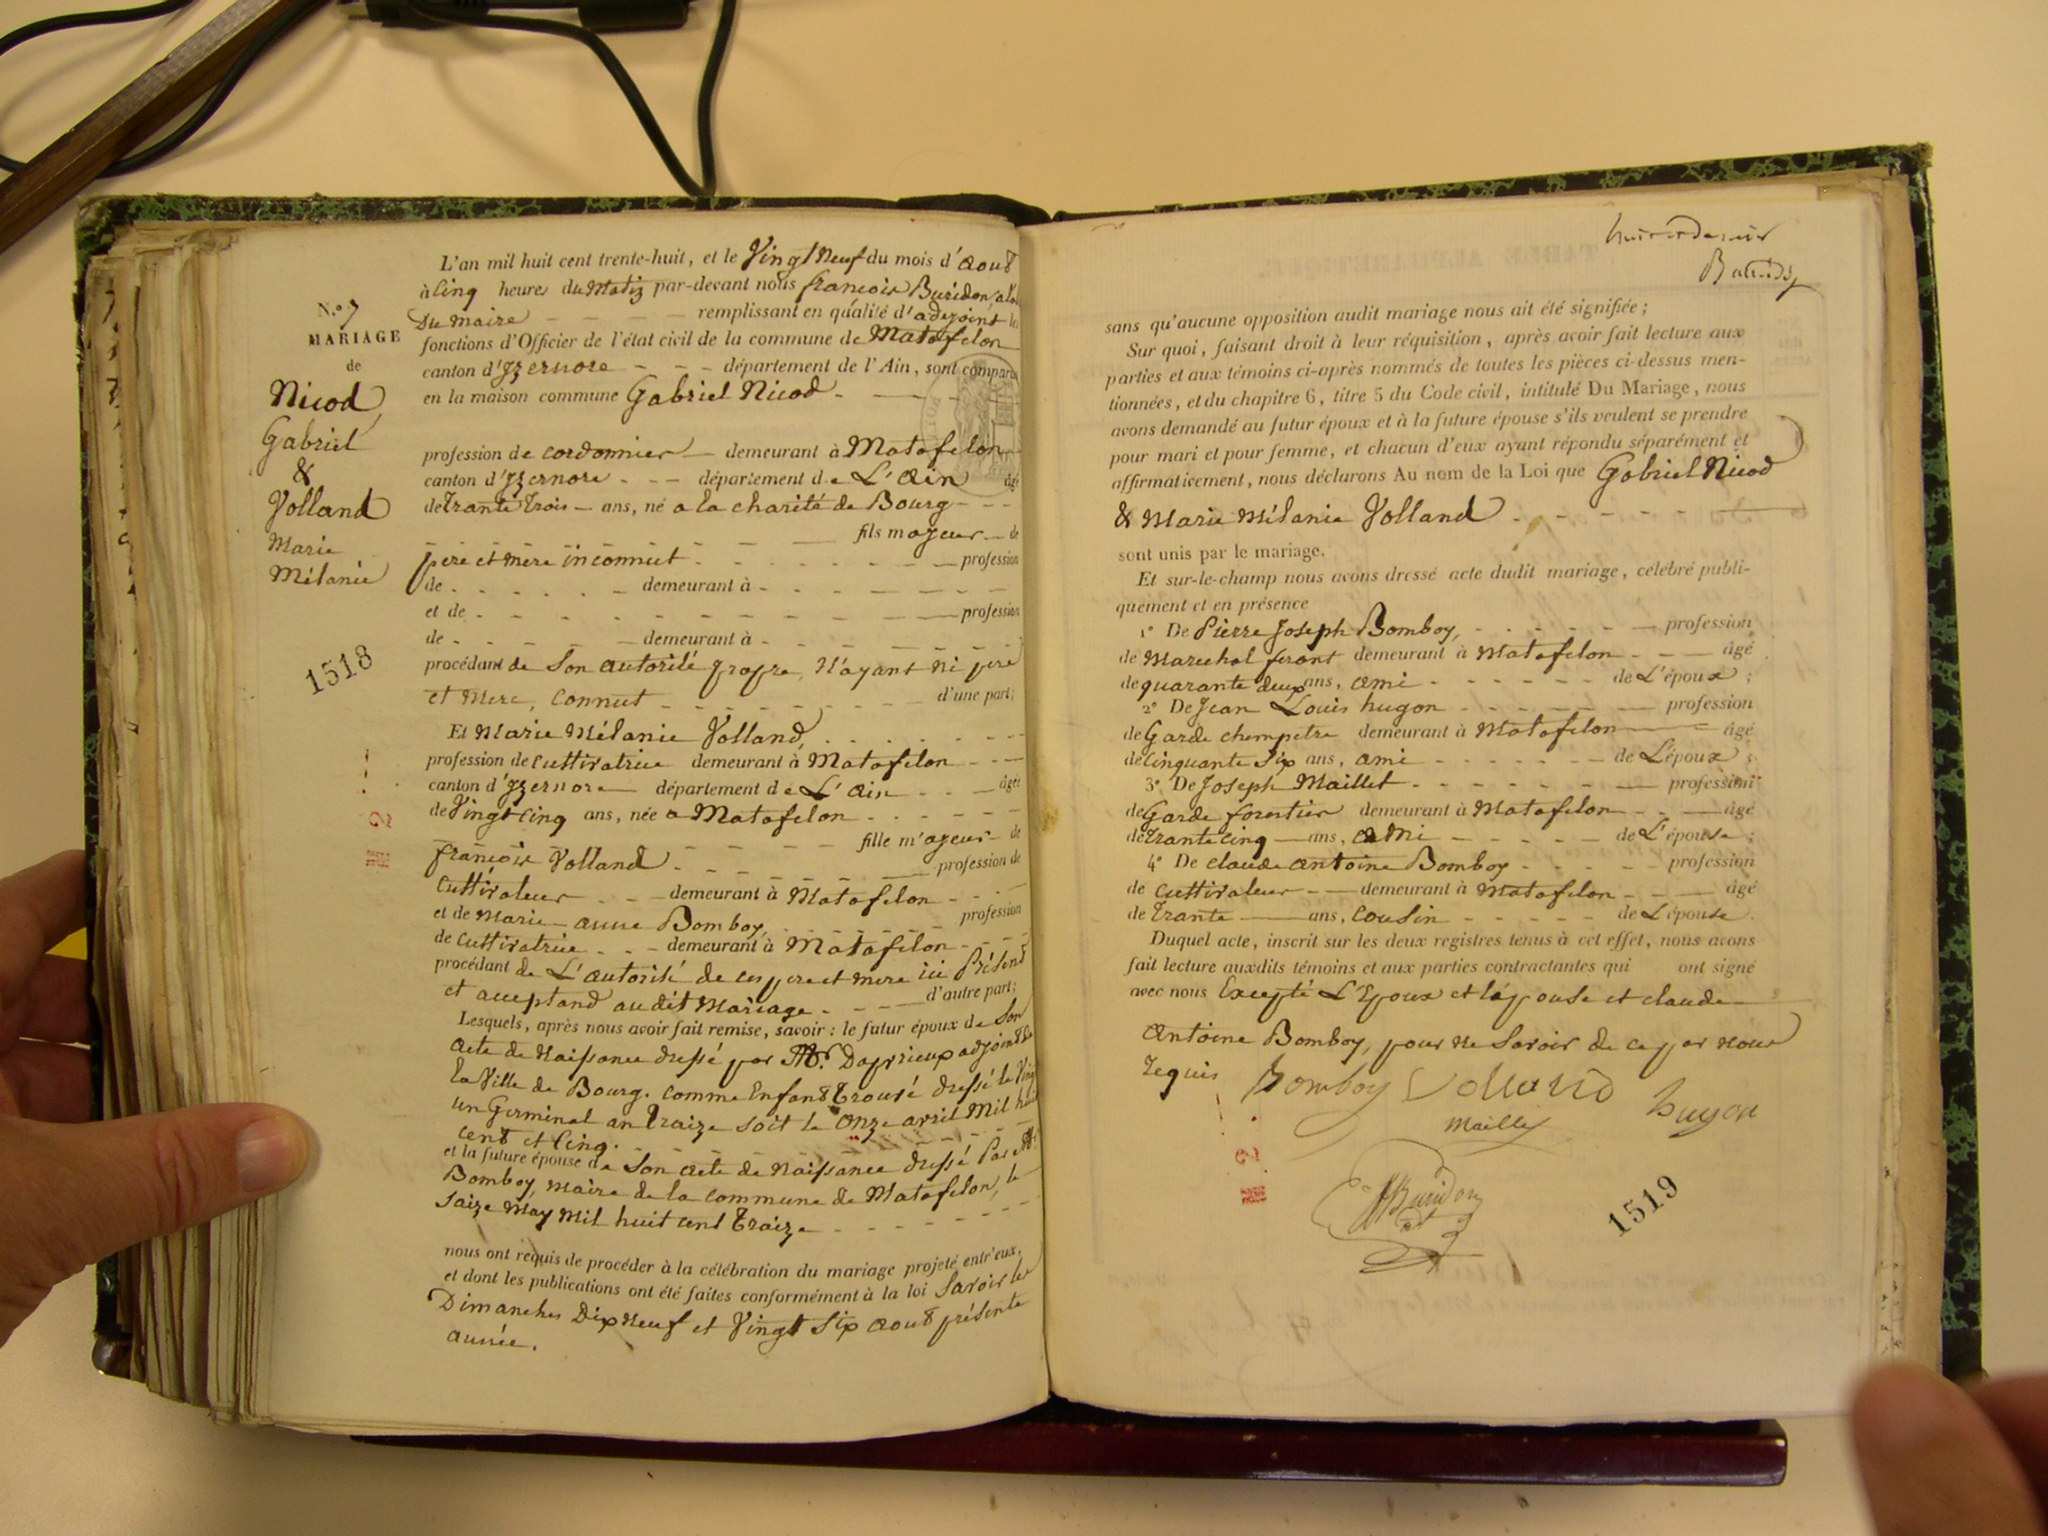 L'an mil huit cent trente-huit, et le Vingt Neuf du mois d'aout
à Cinq heures du Matin par-devant nous francois Buridon
Du maire remplissant en qualité d'adjoint les
fonctions d'Officier de l'état civil de la commune de Matafelon
canton d'Yzernore département de l'Ain, sont comparus
en la maison commune Gabriel Nicod
profession de cordonnier demeurant à Matafelon
canton d'Yzernore département de L'Ain âgé
de Trante Trois ans, né a la charité de Bourg
fils majeur de
pere et mere inconnut profession
de demeurant à
et de profession
de demeurant à
procédant de Son autorité propre, N'ayant ni pere
et mere, connut d'une part;
Et Marie Mélanie Volland,
profession de cuttivatrice demeurant à Matafelon
canton d'Yzernore département de L'Ain âgée
de Vingt Cinq ans, née a Matafelon
fille majeur de
françois Volland profession de
Cuttivateur demeurant à Matafelon
et de Marie anne Bomboy, profession
de cuttivatrice demeurant à Matafelon
procédant de L'autorité de ces pere et mere ici Présend
et acceptand audit Mariage d'autre part;
Lesquels, après nous avoir fait remise, savoir: le futur époux de Son
acte de Naissance dressé par Mr. adjoint de
la Ville de Bourg. comme Enfant Trouvé dressé le Vingt
un Germinal an Traize soit le Onze avril Mil huit
cent et Cinq.
et la future épouse de Son acte de Naissance dressé Par Mr
Bomboy, maire de la commune de Matafelon, le
Saize May Mil huit cent Traize
nous ont requis de procéder à la célébration du mariage projeté entr'eux,
et dont les publications ont été faites conformément à la loi Savoir les
Dimanches Dix Neuf et Vingt Six aout présente
année.
N.º 7
MARIAGE
de
Nicod
Gabriel
&
Volland
Marie
Mélanie
1518
2
sans qu'aucune opposition audit mariage nous ait été signifiée;
Sur quoi, faisant droit à leur réquisition, après avoir fait lecture aux
parties et aux témoins ci-après nommés de toutes les pièces ci-dessus men-
tionnées, et du chapitre 6, titre 5 du Code civil, intitulé Du Mariage, nous
avons demandé au futur époux et à la future épouse s'ils veulent se prendre
pour mari et pour femme, et chacun d'eux ayant répondu séparément et
affirmativement, nous déclarons Au nom de la Loi que Gabriel Nicod
& Marie Mélanie Volland
sont unis par le mariage.
Et sur-le-champ nous avons dressé acte dudit mariage, célébré publi-
quement et en présence
1º De Pierre Joseph Bomboy, profession
de Marechal ferant demeurant à Matafelon âgé
de quarante deux ans, ami de L'époux;
2º De Jean Louis hugon profession
de Garde champetre demeurant à Matafelon âgé
de Cinquante Six ans, ami de L'époux;
3º De Joseph Maillet profession
de Garde forestier demeurant à Matafelon âgé
de Trante Cinq ans, ami de L'épouse;
4º De claude antoine Bomboy profession
de cuttivateur demeurant à Matafelon âgé
de Trante ans, Cousin de L'épouse.
Duquel acte, inscrit sur les deux registres tenus à cet effet, nous avons
fait lecture auxdits témoins et aux parties contractantes qui ont signé
avec nous Excepté L'Epoux et l'épouse et claude
antoine Bomboy, pour ne Savoir de ce par nous
requis
Bomboy Volland hugon
Maillet
Buridon
1519
2